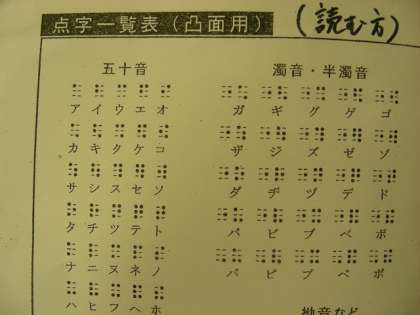 点字一覧表（凸面用）
(読む方)
五十音
ア イ ウ エ オ
カ キ ク ケ コ
サ シ ス セ ソ
タ チ ツ テ ト
ナ ニ ヌ ネ ノ
ハ ヒ フ ヘ ホ
濁音・半濁音
ガ ギ グ ゲ ゴ
ザ ジ ズ ゼ ゾ
ダ ヂ ヅ デ ド
バ ビ ブ ベ ボ
パ ピ プ ペ ポ
拗音など